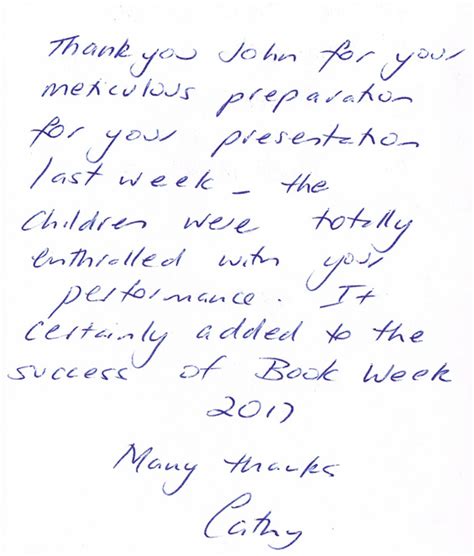 Thank you John for your
meticulous preparation
for your presentation
last week - the
children were totally
enthralled with your
performance. It
certainly added to the
success of Book Week
2017
Many thanks
Cathy